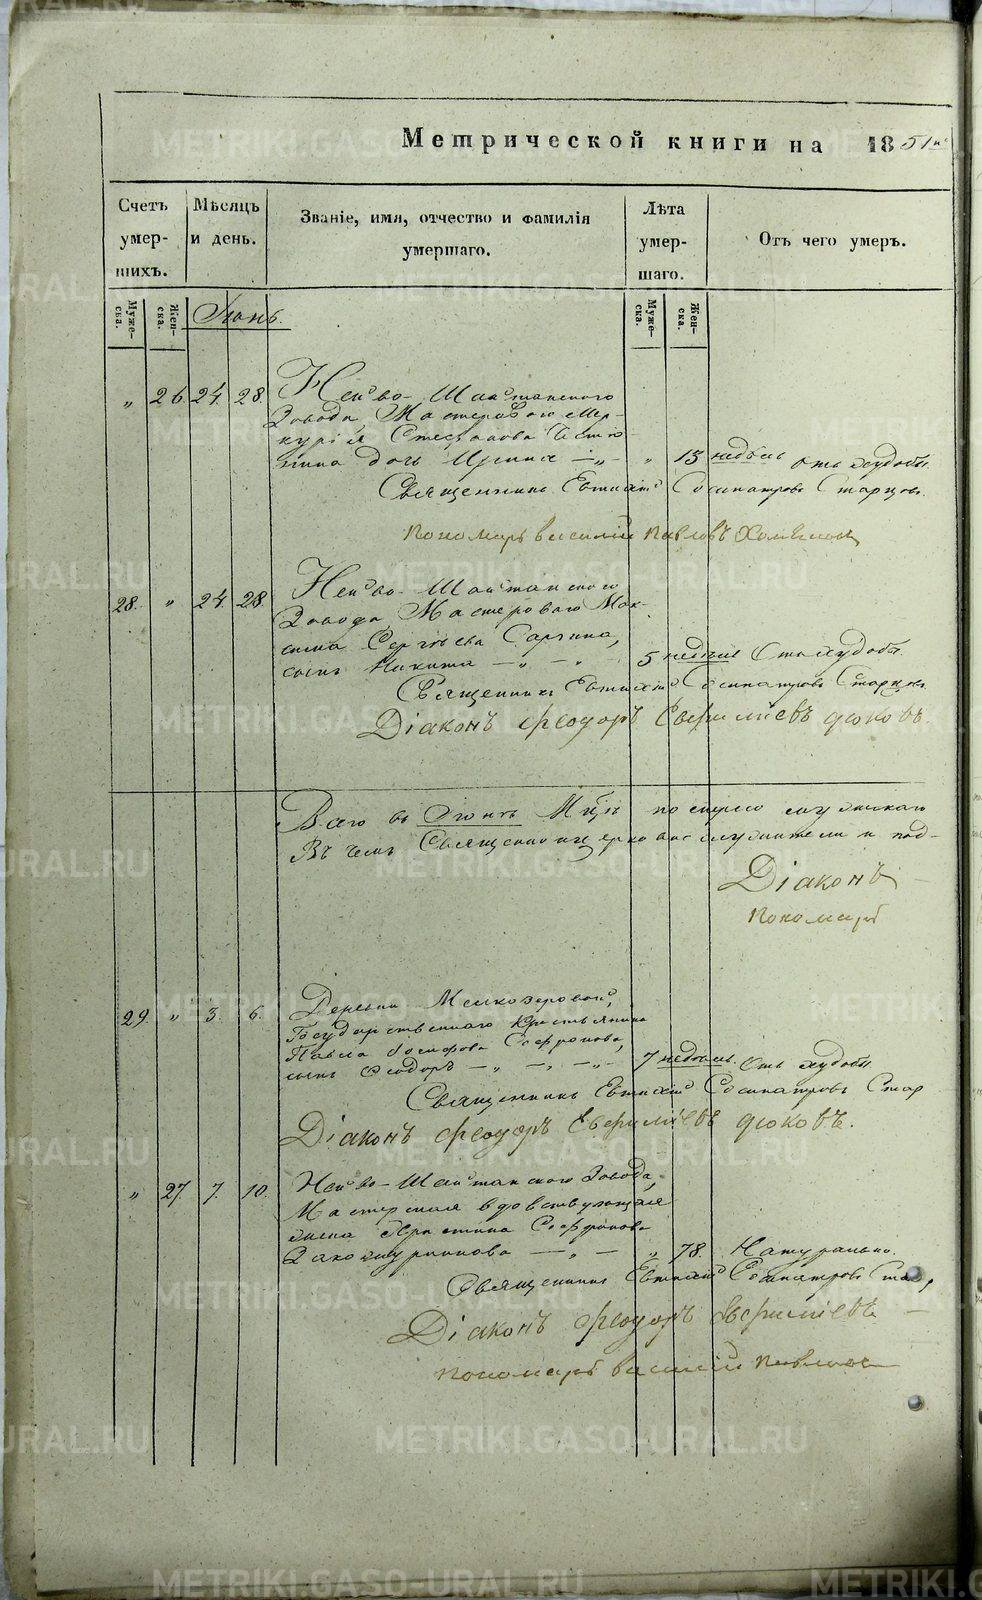 Метрической книги на 1851й
Счетъ умер-шихъ. Мѣсяцъ и день. Званіе, имя, отчество и фамилія умершаго. Лѣта умер-шаго. Отъ чего умеръ.
Муже-ска. Жен-ска. Іюнь. Муже-ска. Жен-ска.
„ 26. 24. 28. Нейво-Шайтанского
Завода, Мастероваго Мер-
курія Степанова
дочь Ирина — „ — „ 13 недѣль отъ худобы.
Священникъ Евтихій Сосипатровъ Старцовъ.
Пономарь Василій Павловъ Хомяковъ
28. „ 24. 28. Нейво-Шайтанского
Завода, Мастероваго Мак-
сима Сергѣева Саргина,
сынъ Никита — „ — „ — 5 недѣль Отъ худобы.
Священникъ Евтихій Сосипатровъ Старцовъ.
Діаконъ Феодоръ
Всего въ Іюнѣ Мцѣ по
Въ чемъ Священноцерковнослужители и под-
Діаконъ
Пономарь
29. „ 3. 6. Деревни Мелкозеровой,
Государственнаго Крестьянина
Павла Іосифова Софронова,
сынъ Ѳеодоръ — „ — „ — „ — 7 недѣль. Отъ худобы
Священникъ Евтихій Сосипатровъ Стар
Діаконъ Феодоръ
„ 27. 7. 10. Нейво-Шайтанского Завода,
Мастерская вдовствующая
жена Христина Софронова
— „ — „ 78. Натурально.
Священникъ Евтихій Сосипатровъ Стар
Діаконъ Феодоръ
Пономарь Василій Павловъ
METRIKI.GASO-URAL.RU